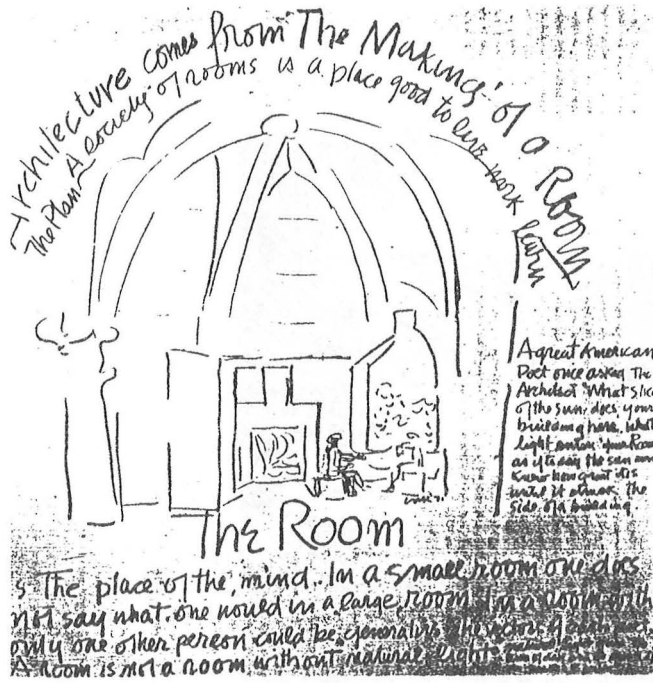 Architecture comes from The Making of a Room
The Plan A society of rooms is a place good to live work learn
A great American
Poet once asked The
Architect 'What slice
of the sun does your
building have. What
light enters your Room
as if to say the sun never
knew how great it is
until it struck the
side of a building.
The Room
s The place of the mind. In a small room one does
not say what one would in a large room. In a room with
only one other person could be generative. The vectors of each meet.
A room is not a room without natural light.